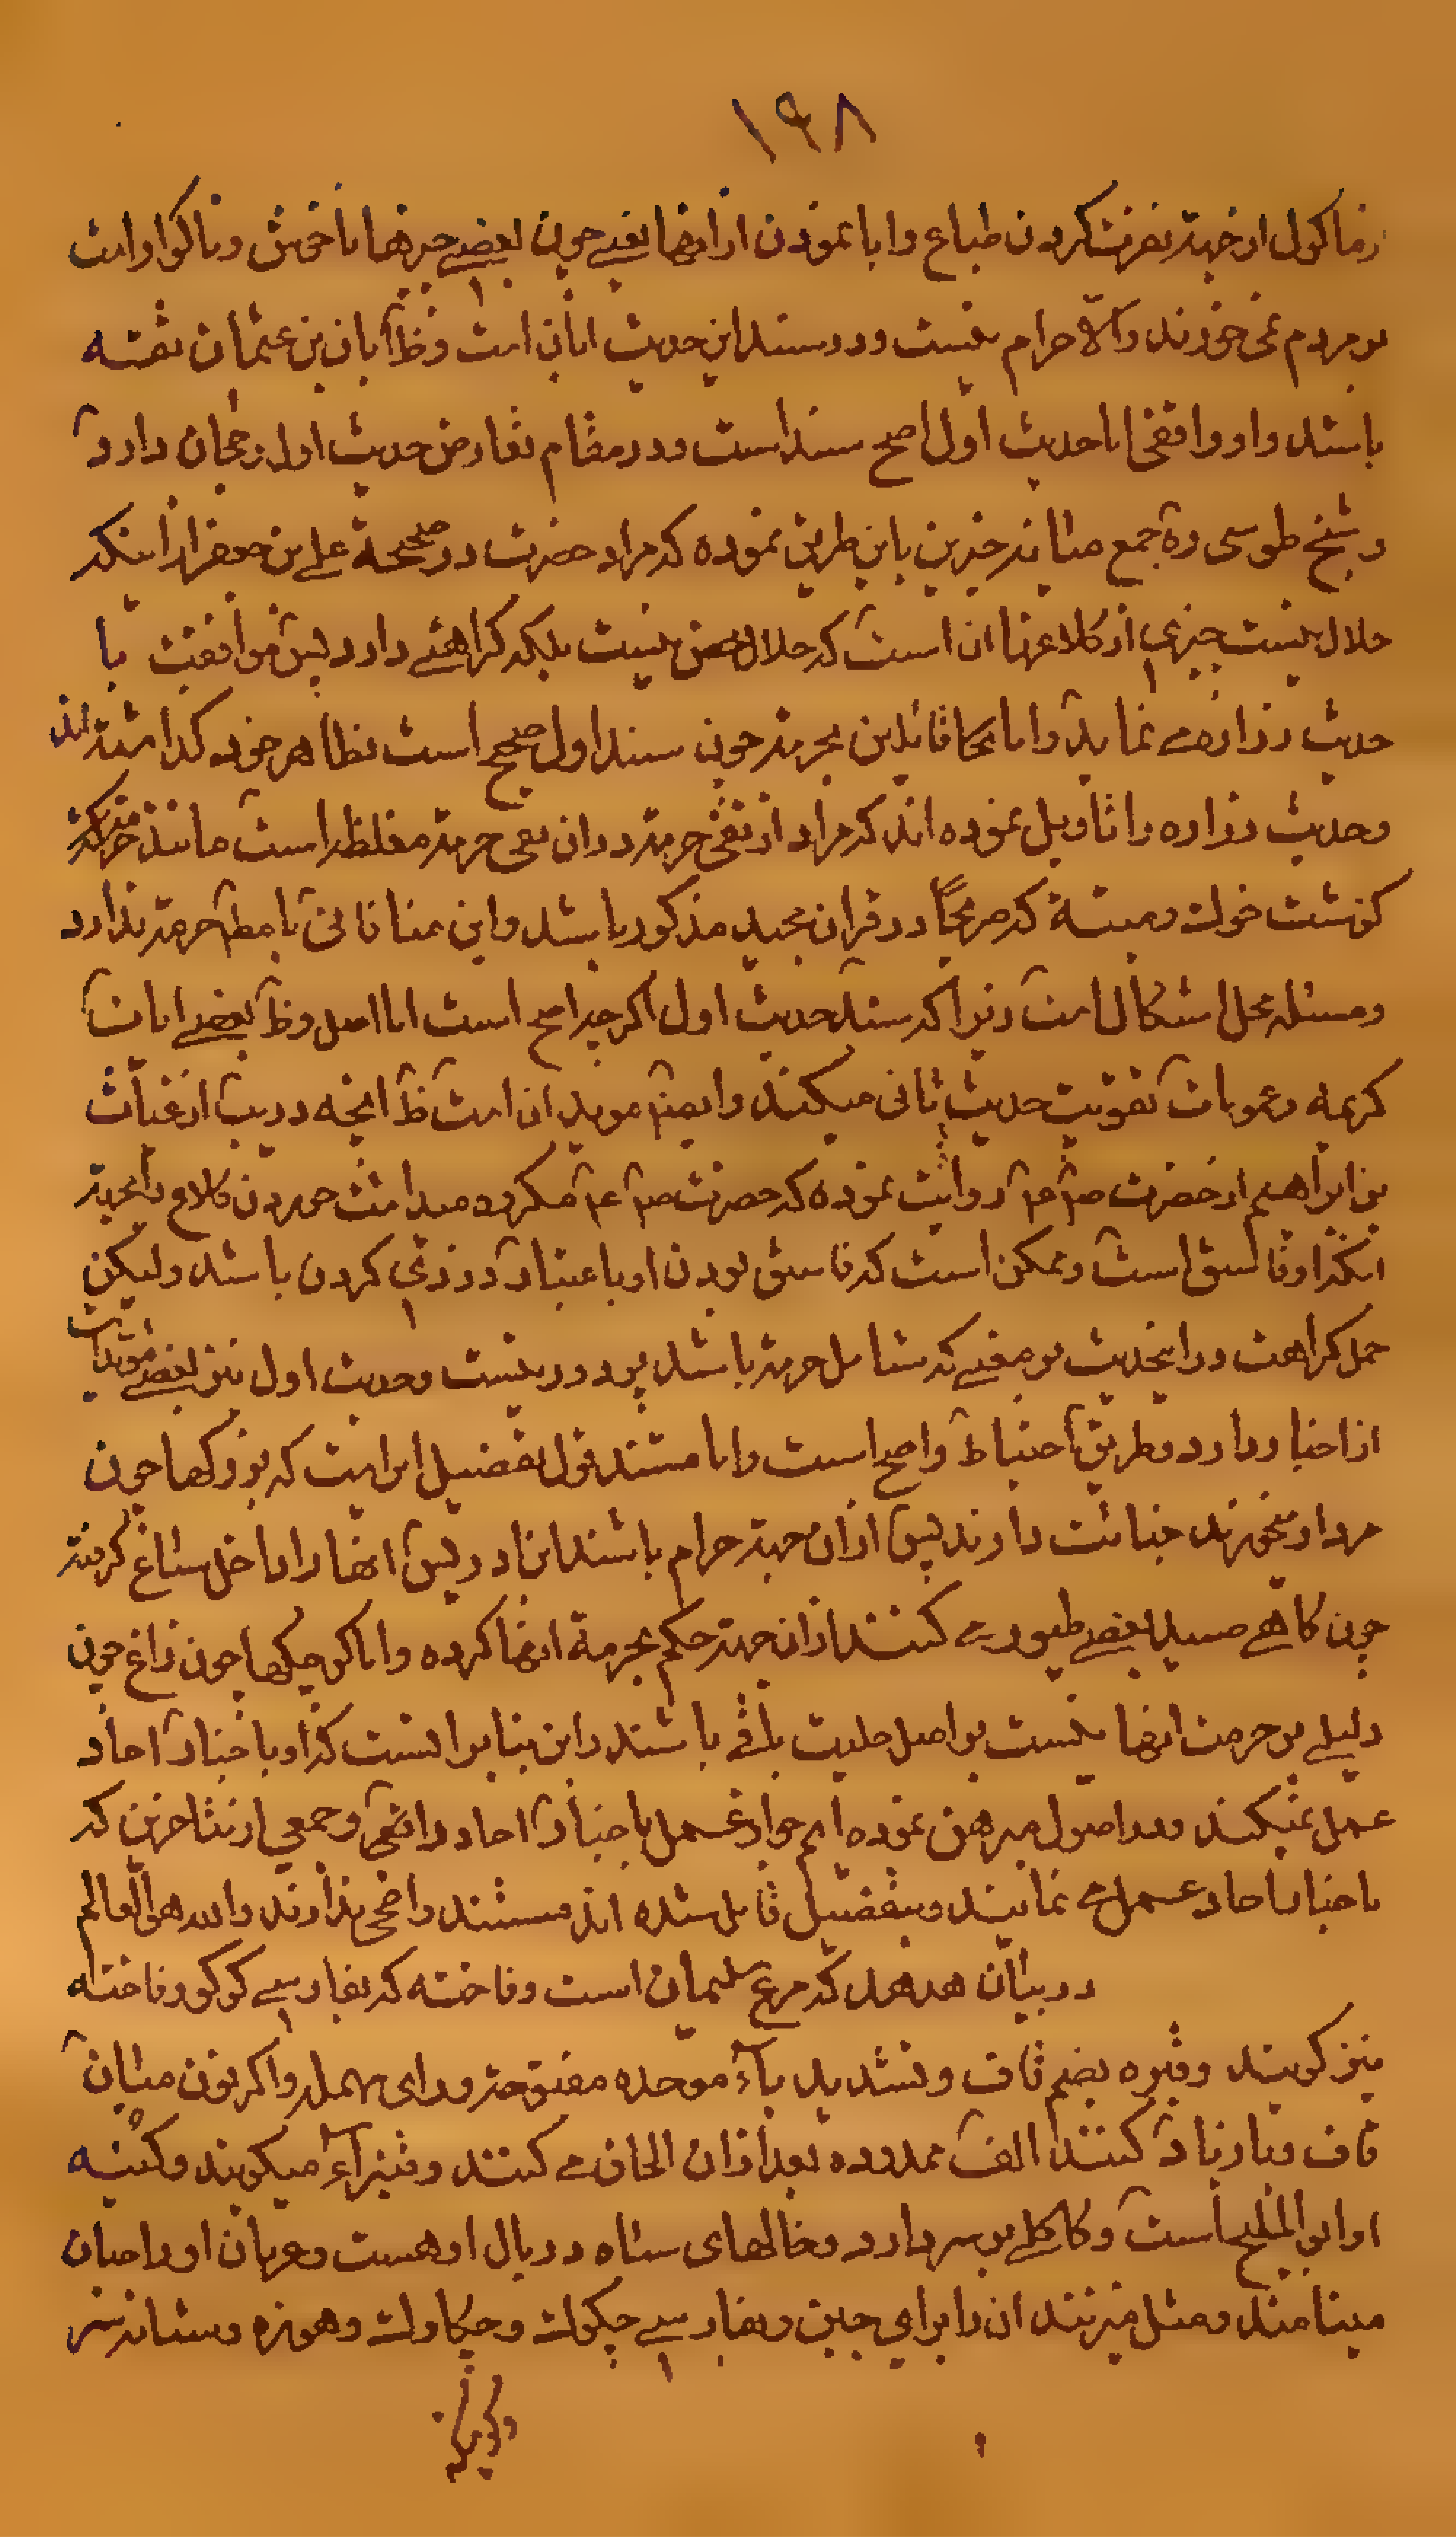 ۱۹۸
رماکول از جهة نفرت کردن طباع و ابا نمودن از انها یعنے چون بعضے چیزها ناخوش و ناکوار است
بر مردم نمی خورند و الا حرام نیست و در سند این حدیث ابان است و ظ ابان بن عثمان ثقه
باشد و او واقفی اما حدیث اول اصح سند است و در مقام تعارض حدیث اول رجحان دارد
و شیخ طوسی ره جمع میانه خبرین باین طریق نموده که مراد حضرت در صحیحة علے بن جعفر از اینکه
حلال نیست چیزی از کلاغها ان است که حلال محض نیست بلکه کراهتے دارد پس موافقت با
حدیث زراره مے نماید و اما قائلین بحرمة چون سند اول صحیح است بظاهر خود کذاشته اند
و حدیث زراره را تاویل نموده اند که مراد از نفی حرمة در ان نفی حرمة مغلظه است مانند حرمة
کوشت خوک و میتة که صریحًا در قران مجید مذکور باشد و این منافاتی با مط حرمة ندارد
و مسئله محل اشکال است زیرا که سند حدیث اول اکرچه اصح است اما اصل و ظ بعضے ایات
کریمه و عمومات تقویت حدیث ثانی میکند و ایضم موید ان است ظ انچه در یب از غیاث
بن ابراهیم از حضرت روایت نموده که حضرت مکروه میدانست خوردن کلاغ را بجهة
انکه او فاسق است و ممکن است که فاسق بودن او باعتبار دزدی کردن باشد ولیکن
حمل کراهت در اینحدیث بر معنے که شامل حرمة باشد پر دور نیست و حدیث اول نیز بعضے مؤیدات
از اخبار دارد و طریق احتیاط واضح است و اما مستند قول بتفصیل این است که بزرکها چون
مردار میخورند خباثت دارند پس از ان جهة حرام باشند ابن ادریس انها را داخل سباع کرفته
چون کاهے صید بعضے طیور مے کنند از ان جهة حکم بحرمة انها کرده و اما کوچکها چون زاغ چون
دلیلے بر حرمت انها نیست بر اصل حلیت باقے باشند و این بنا بر انست که او باخبار احاد
عمل نمیکند و در اصول مبرهن نموده ایم جواز عمل باخبار احاد را و جمعی از متاخرین که
باخبار احاد عمل مے نمایند و بتفصیل قایل شده اند مستند واضحی ندارند و الله هو العالم
در بیان هدهد که مرغ سلیمان است و فاخته که بفارسے کوکو و فاخته
نیز کویند و قبره بضم قاف و تشدید باء موحده مفتوحة و رای مهمله و اکر نون میان
قاف و با زیاد کنند الف ممدوده بعد از ان الحاق مے کنند و قنبراء میکویند و کنیه
او ابو الملیح است و کاکلے بر سر دارد و خالهای سیاه در بال او هست و عربان او را جبان
مینامند و مثل میزنند ان را برای جبن و بفارسے چکوک و چکاوک و هوزه و ستانه سر
و کریانه